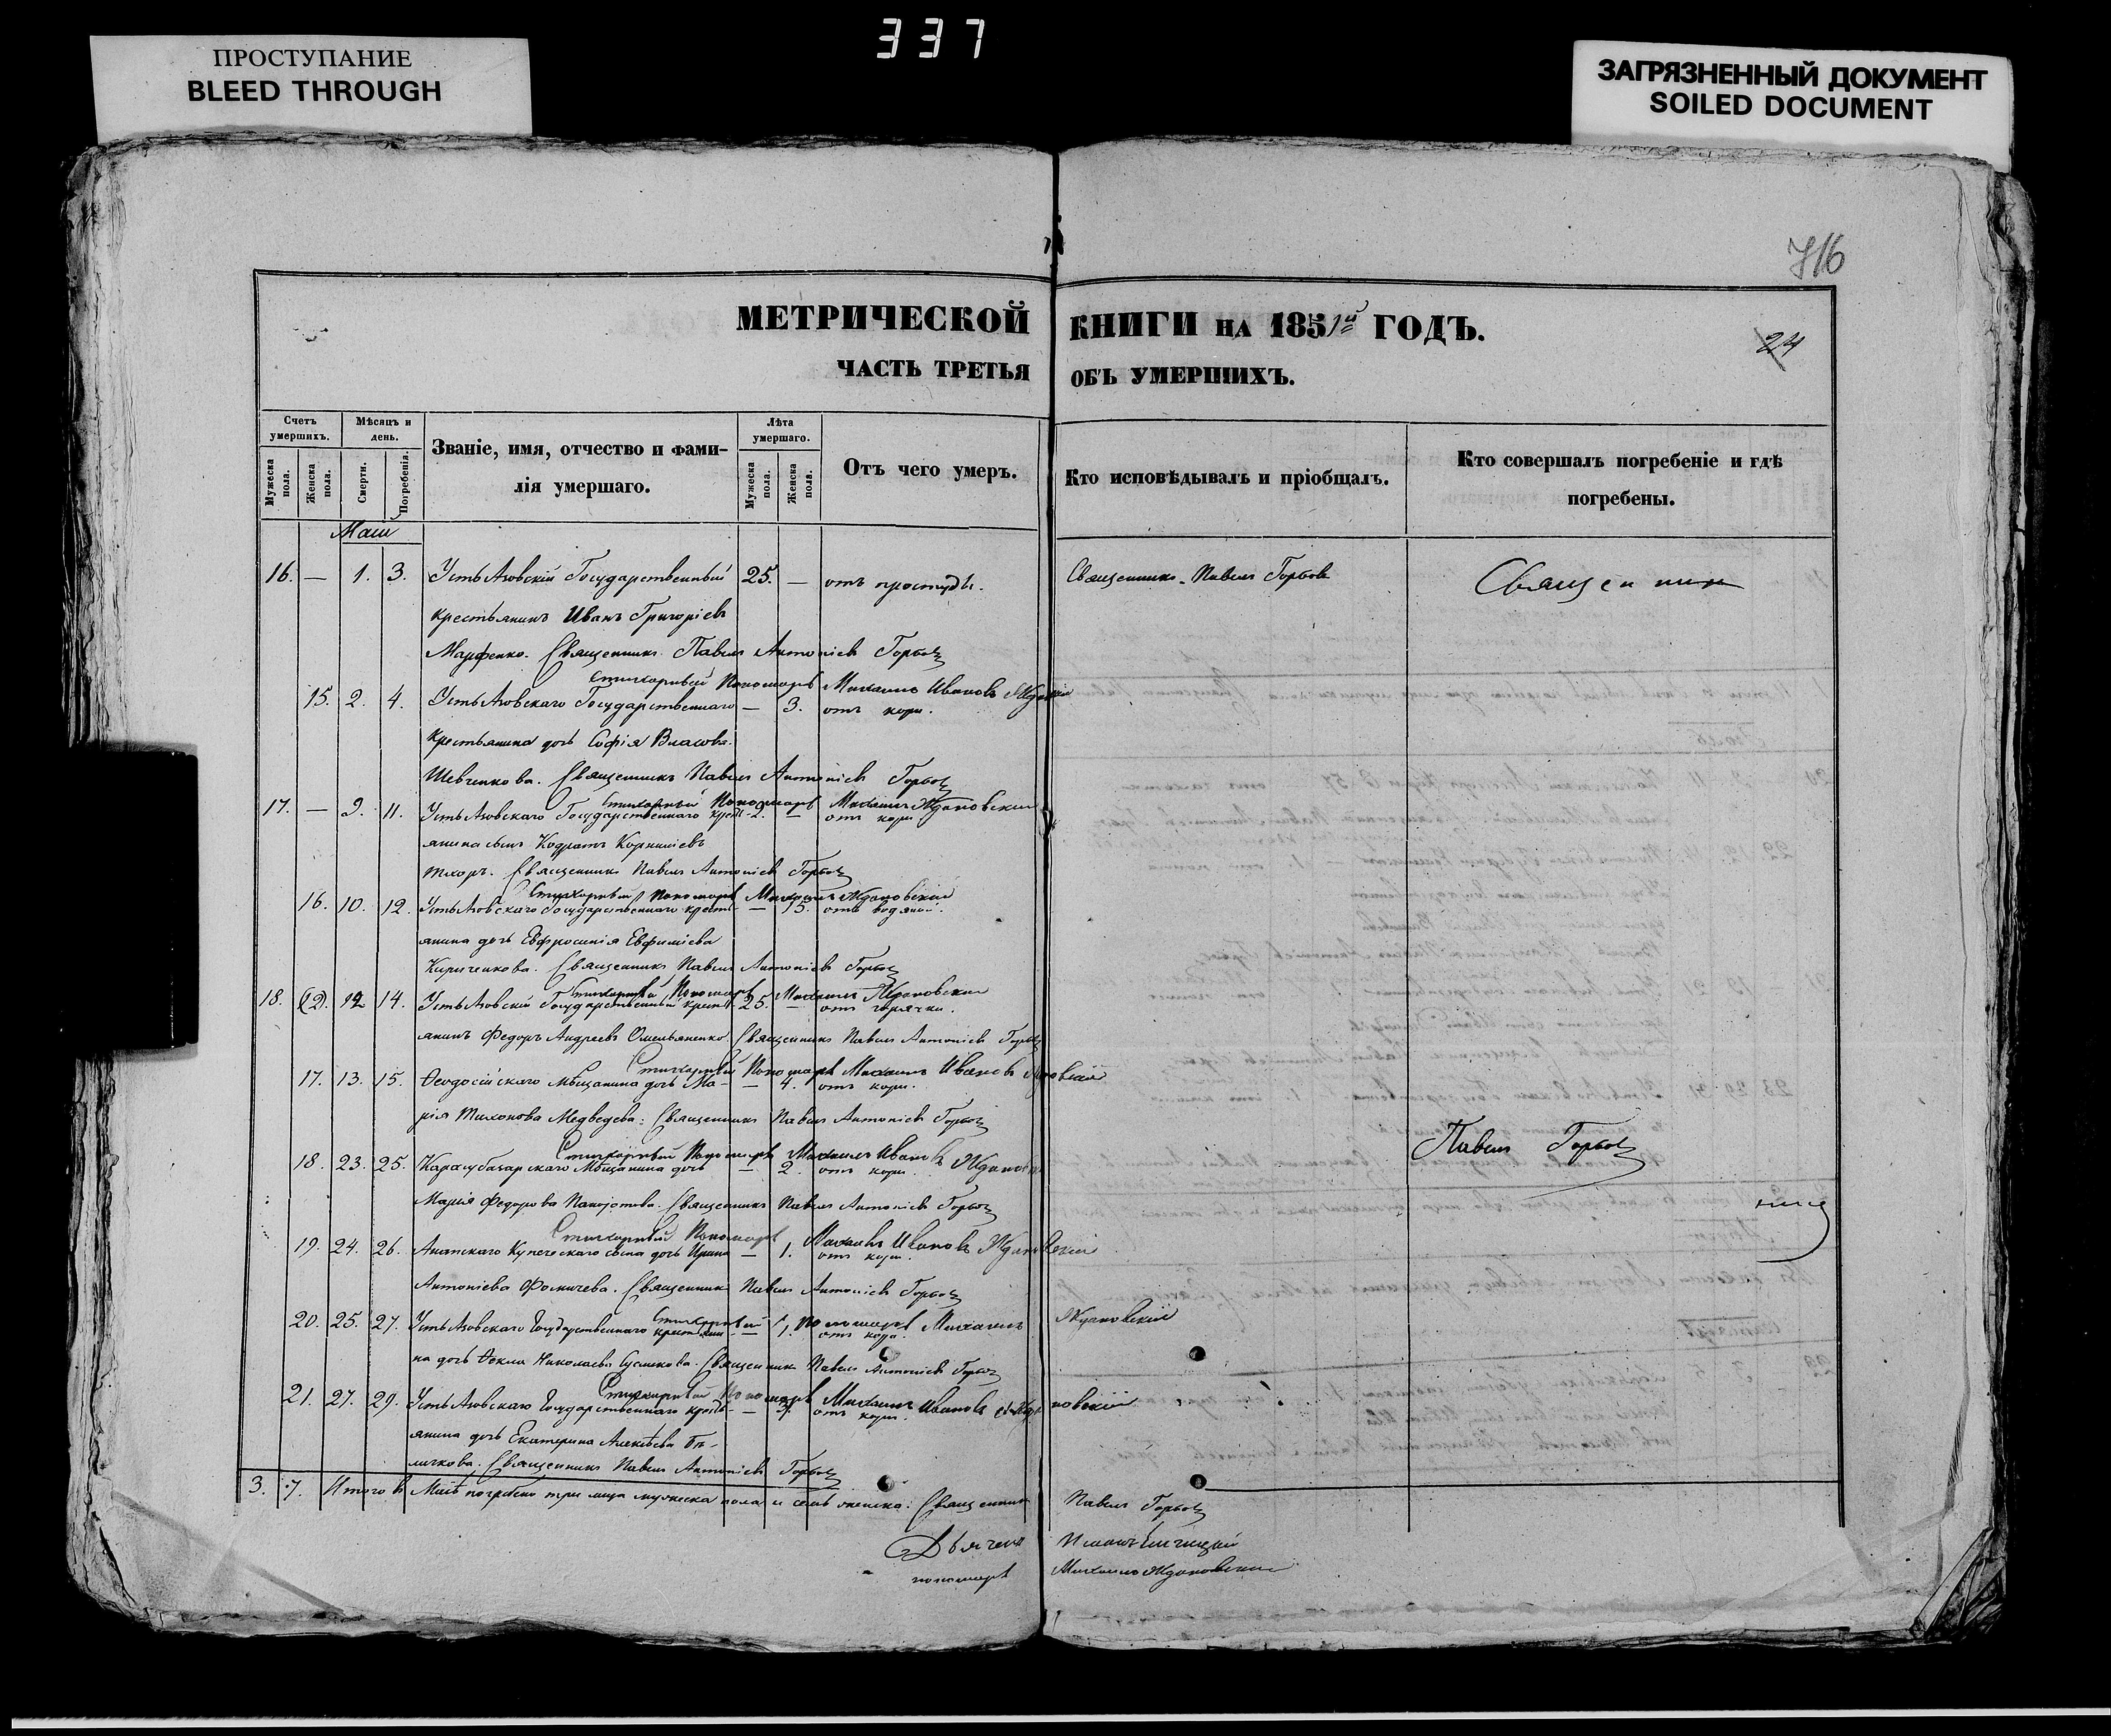 337
ПРОСТУПАНИЕ
BLEED THROUGH
ЗАГРЯЗНЕННЫЙ ДОКУМЕНТ
SOILED DOCUMENT
716
МЕТРИЧЕСКОЙ КНИГИ НА 1851й ГОДЪ.
24
ЧАСТЬ ТРЕТЬЯ ОБЪ УМЕРШИХЪ.
Счетъ умершихъ.
Мужеска пола.
Женска пола.
Мѣсяцъ и день.
Смерти.
Погребенія.
Званіе, имя, отчество и фами-
лія умершаго.
Лѣта умершаго.
Мужеска пола.
Женска пола.
Отъ чего умеръ.
Кто исповѣдывалъ и пріобщалъ.
Кто совершалъ погребеніе и гдѣ
погребены.
Маій
16. — 1. 3. Усть Азовскій Государственный 25. — отъ простуды. Священникъ Павелъ Горбов Священник
крестьянинъ Иванъ Григоріевъ
Марфенко. Священникъ Павелъ Антоніевъ Горбов
Стихарный Пономарь Михаилъ Ивановъ
15. 2. 4. Усть Азовскаго Государственнаго — 3. отъ кори.
крестьянина дочь Софія Власова
Шевченкова. Священникъ Павелъ Антоніевъ Горбов
Стихарный Пономарь Михаилъ Ждановскій
17. — 9. 11. Усть Азовскаго Государственнаго кресть- 2. — отъ кори
янина сынъ Кодратъ Корниліевъ
Тхоръ. Священникъ Павелъ Антоніевъ Горбов
Стихарный Пономарь Михаилъ Ждановскій
16. 10. 12. Усть Азовскаго Государственнаго кресть- — 15. отъ водяной.
янина дочь Евфросинія Евфиміева
Кириченкова. Священникъ Павелъ Антоніевъ Горбов
Стихарный Пономарь Михаилъ Ждановскій
18. 12. 14. Усть Азовскій Государственный кресть- 25. — отъ горячки.
янинъ Федоръ Андреевъ Омельяненко. Священникъ Павелъ Антоніевъ Горбов
Стихарный Пономарь Михаилъ Ивановъ
17. 13. 15. Ѳеодосійскаго мѣщанина дочь Ма- — 4. отъ кори.
рія Тихонова Медведева. Священникъ Павелъ Антоніевъ Горбов
Павелъ Горбов
Стихарный Пономарь Михаилъ Ивановъ
18. 23. 25. Карасубазарскаго Мѣщанина дочь — 2. отъ кори.
Марія Федорова. Священникъ Павелъ Антоніевъ Горбов
Стихарный Пономарь Михаилъ Ивановъ Ждановскій
19. 24. 26. Анапскаго Купеческаго сына дочь Ирина — 1. отъ кори.
Антоніева Фомичева. Священникъ Павелъ Антоніевъ Горбов
Стихарный Пономарь Михаилъ Ждановскій
20. 25. 27. Усть Азовскаго Государственнаго крестьяни- — 1. отъ кори.
на дочь Ѳекла Николаева. Священникъ Павелъ Антоніевъ Горбов
Стихарный Пономарь Михаилъ Ивановъ Ждановскій
21. 27. 29. Усть Азовскаго Государственнаго кресть- — отъ кори.
янина дочь Екатерина Алексѣева Бѣ-
личкова. Священникъ Павелъ Антоніевъ Горбов
3. 7. Итого въ Маіѣ погребено три лица мужеска пола и семь женска: Священникъ Павелъ Горбов
Дьячекъ
пономарь Михаилъ Ждановскій